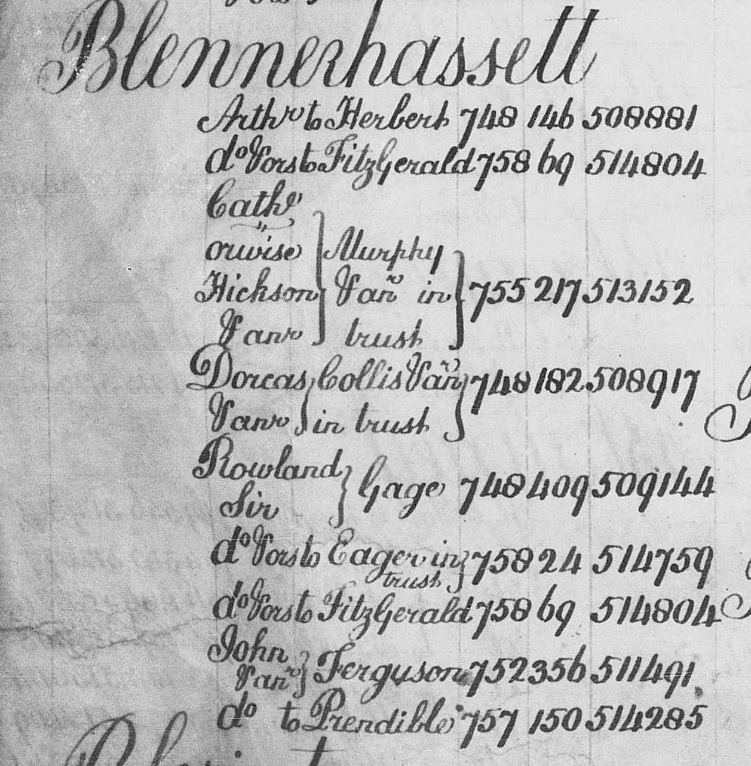 Blennerhassett
Arthr to Herbert 748 146 508881
do & ors to FitzGerald 758 69 514804
Cathe
orwise } Murphy
Hickson } & anr in } 755 217 513152
& anr } trust
Dorcas } Collis & anr } 748 182 508917
& anr } in trust
Rowland } Gage 748 409 509144
Sir
do & ors to Eager in } 758 24 514759
trust
do & ors to FitzGerald 758 69 514804
John } Ferguson 752 356 511491
& anr
do to Prendible 757 150 514285